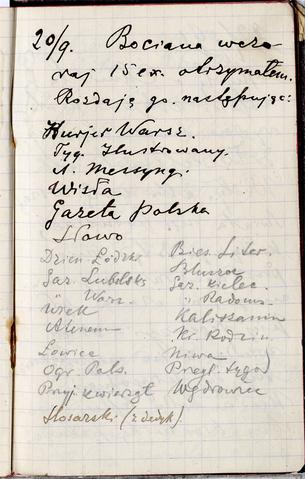 20/9. Bociana wczo
raj 15 ex. otrzymałem.
Rozdaję go następując:
Kurjer Warsz.
Tyg. Ilustrowany.
A. Messyng.
Wisła
Gazeta Polska
Słowo
Dzien Łódzki
Gaz. Lubelska
" Warsz.
Wiek
Ateneum
Łowiec
Ogr Pols.
Przyj. zwierząt
Ślosarski (z dedyk).
Bies. Liter.
Bluszcz
Gaz. Kielec.
" Radoms.
Kaliszanin
Kr. Rodzin
Niwa
Przegl. tygod
Wędrowiec